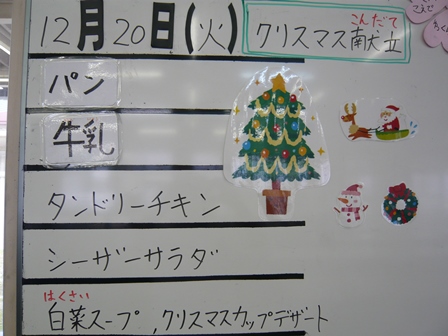 12月20日(火)
こんだて
クリスマス献立
パン
牛乳
タンドリーチキン
シーザーサラダ
はくさい
白菜スープ,クリスマスカップデザート